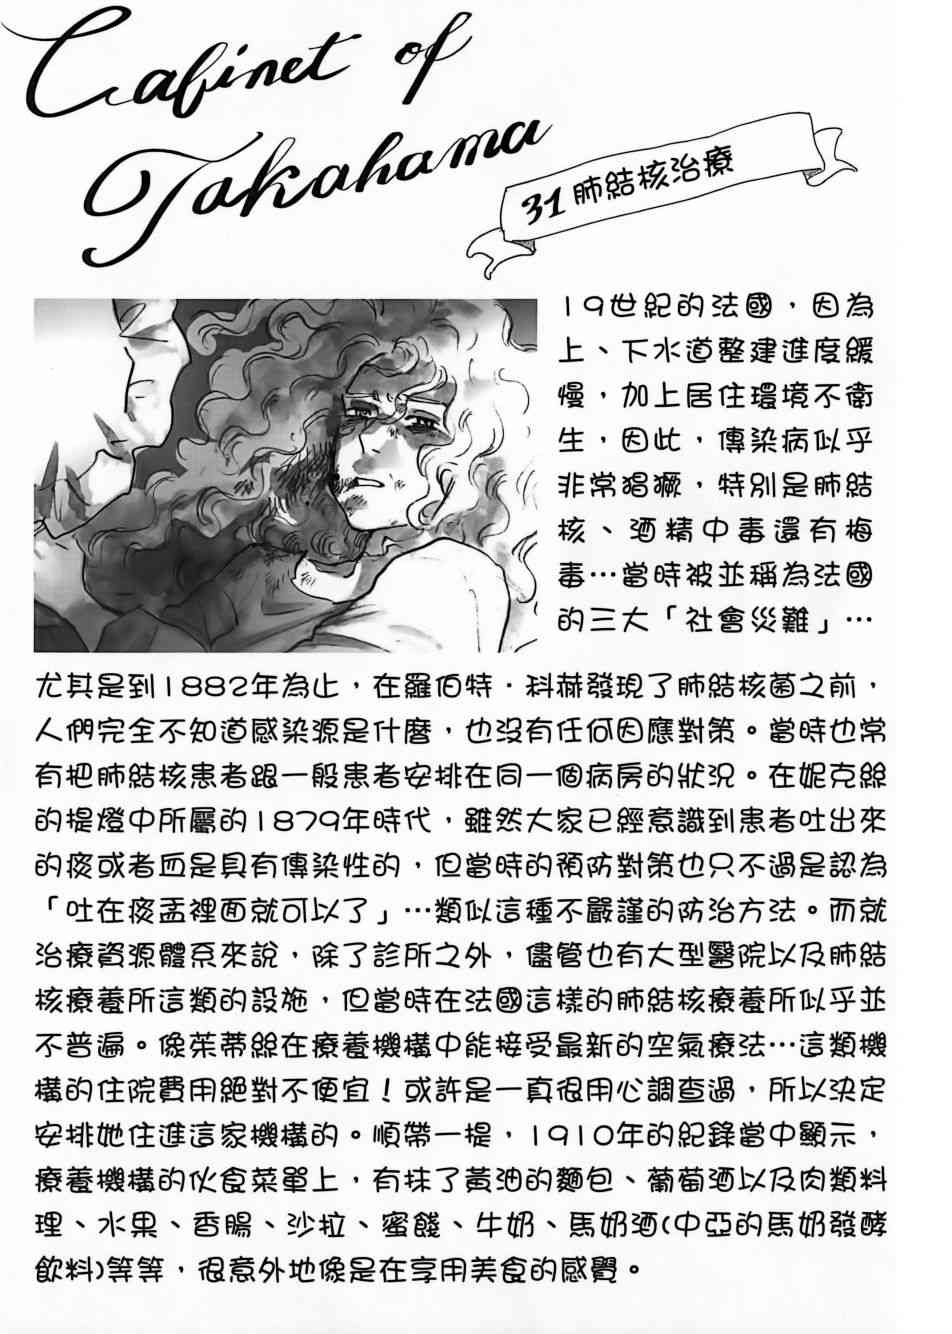 Cabinet of
Takahama
31 肺結核治療
19世紀的法國，因為
上、下水道整建進度緩
慢，加上居住環境不衛
生，因此，傳染病似乎
非常猖獗，特別是肺結
核、酒精中毒還有梅
毒…當時被並稱為法國
的三大「社會災難」…
尤其是到1882年為止，在羅伯特．科赫發現了肺結核菌之前，
人們完全不知道感染源是什麼，也沒有任何因應對策。當時也常
有把肺結核患者跟一般患者安排在同一個病房的狀況。在妮克絲
的提燈中所屬的1879年時代，雖然大家已經意識到患者吐出來
的痰或者血是具有傳染性的，但當時的預防對策也只不過是認為
「吐在痰盂裡面就可以了」…類似這種不嚴謹的防治方法。而就
治療資源體系來說，除了診所之外，儘管也有大型醫院以及肺結
核療養所這類的設施，但當時在法國這樣的肺結核療養所似乎並
不普遍。像茱蒂絲在療養機構中能接受最新的空氣療法…這類機
構的住院費用絕對不便宜！或許是一真很用心調查過，所以決定
安排她住進這家機構的。順帶一提，1910年的紀錄當中顯示，
療養機構的伙食菜單上，有抹了黃油的麵包、葡萄酒以及肉類料
理、水果、香腸、沙拉、蜜餞、牛奶、馬奶酒(中亞的馬奶發酵
飲料)等等，很意外地像是在享用美食的感覺。